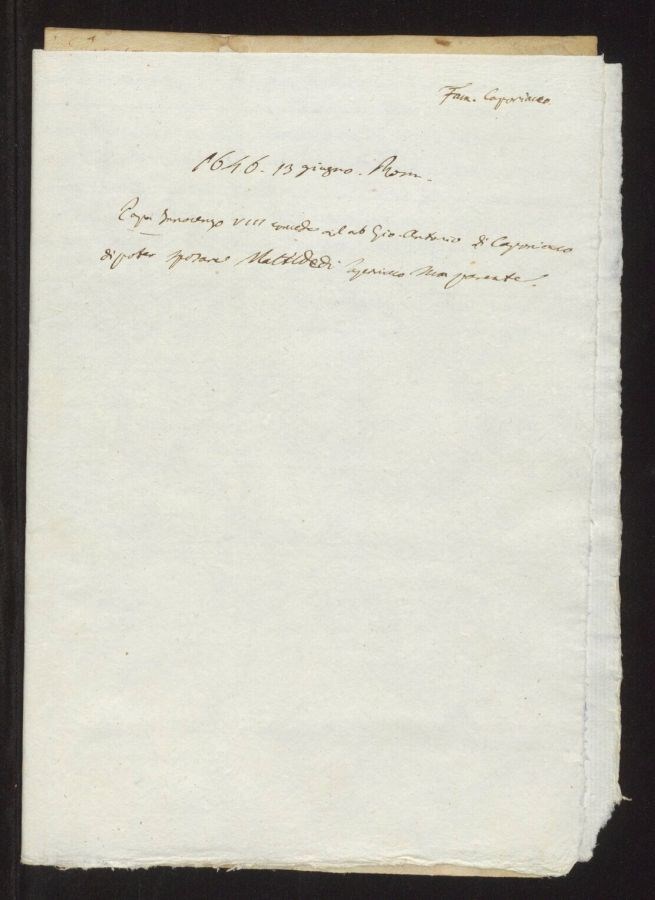 Fam. Caporiacco
1646. 13 giugno. Roma.
Papa Innocenzo VIII concede al ab Gio. Antonio di Caporiaco
di poter sposare Matilde di sua parente.